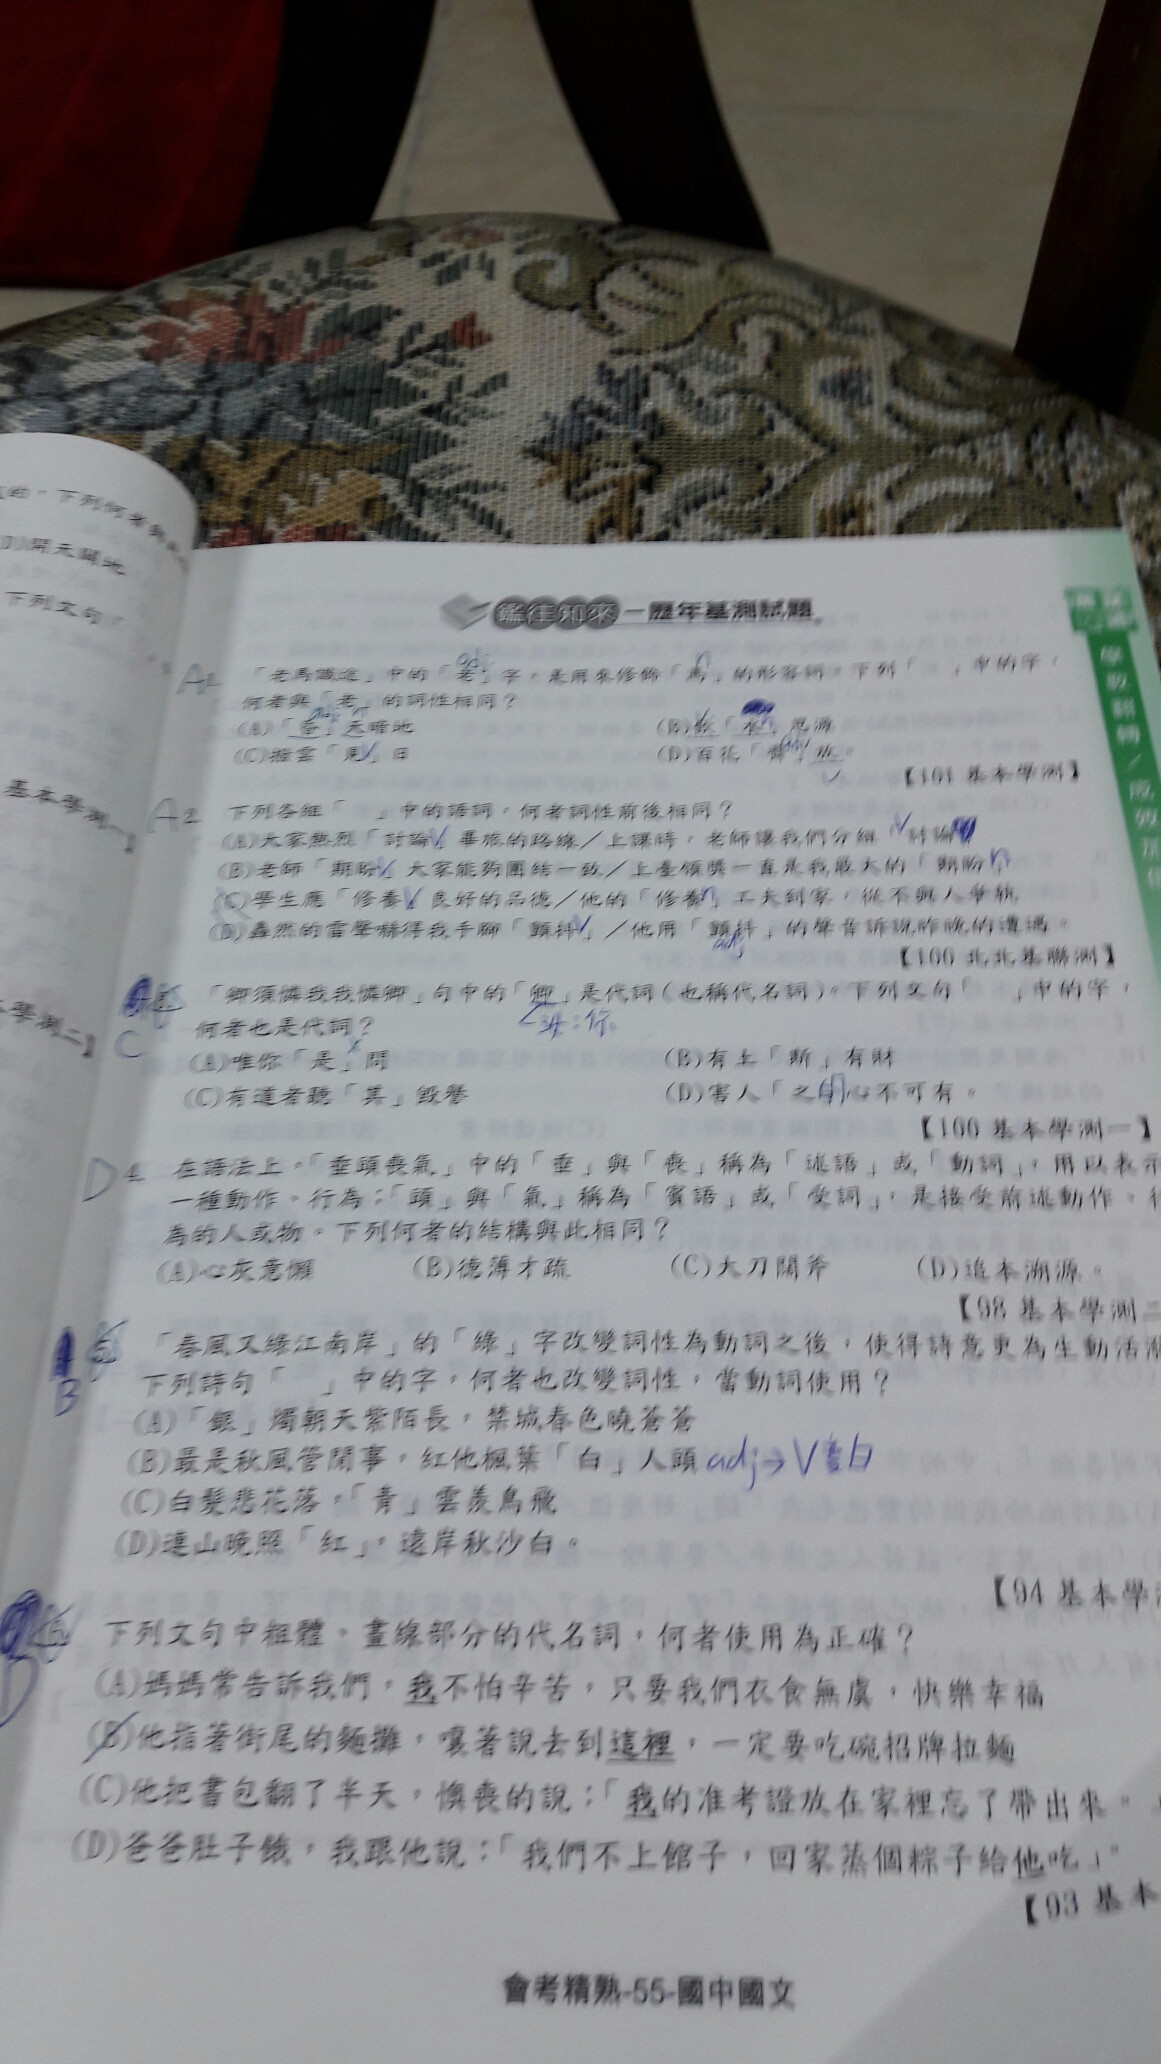 的，下列何者與
(D)開天闢地
下列文句「
基本學測一】
學測二】
鑑往知來－歷年基測試題
A 1. 「老馬識途」中的「老」字，是用來修飾「馬」的形容詞。下列「　」中的字，
adj n
何者與「老」的詞性相同？
(A)「昏」天暗地
(B)飲「水」思源
(C)撥雲「見」日
(D)百花「齊」放。
【101 基本學測】
A 2. 下列各組「　」中的語詞，何者詞性前後相同？
(A)大家熱烈「討論」畢旅的路線／上課時，老師讓我們分組「討論」
(B)老師「期盼」大家能夠團結一致／上臺領獎一直是我最大的「期盼」
(C)學生應「修養」良好的品德／他的「修養」工夫到家，從不與人爭執
(D)轟然的雷聲嚇得我手腳「顫抖」／他用「顫抖」的聲音訴說昨晚的遭遇。
adj
【100 北北基聯測】
「卿須憐我我憐卿」句中的「卿」是代詞（也稱代名詞）。下列文句「　」中的字，
何者也是代詞？
C
(A)唯你「是」問
(B)有土「斯」有財
(C)有道者聽「其」毀譽
(D)害人「之」心不可有。
【100 基本學測一】
D 4. 在語法上，「垂頭喪氣」中的「垂」與「喪」稱為「述語」或「動詞」，用以表示
一種動作、行為；「頭」與「氣」稱為「賓語」或「受詞」，是接受前述動作、行
為的人或物。下列何者的結構與此相同？
(A)心灰意懶 (B)德薄才疏 (C)大刀闊斧 (D)追本溯源。
【98 基本學測二
5. 「春風又綠江南岸」的「綠」字改變詞性為動詞之後，使得詩意更為生動活潑
B 下列詩句「　」中的字，何者也改變詞性，當動詞使用？
(A)「銀」燭朝天紫陌長，禁城春色曉蒼蒼
(B)最是秋風管閒事，紅他楓葉「白」人頭 adj→V 變白
(C)白髮悲花落，「青」雲羨鳥飛
(D)連山晚照「紅」，遠岸秋沙白。
【94 基本學
6. 下列文句中粗體、畫線部分的代名詞，何者使用為正確？
D
(A)媽媽常告訴我們，我不怕辛苦，只要我們衣食無虞，快樂幸福
(B)他指著街尾的麵攤，嚷著說去到這裡，一定要吃碗招牌拉麵
(C)他把書包翻了半天，懊喪的說：「我的准考證放在家裡忘了帶出來。
(D)爸爸肚子餓，我跟他說：「我們不上館子，回家蒸個粽子給他吃」。
【93 基本
會考精熟-55-國中國文